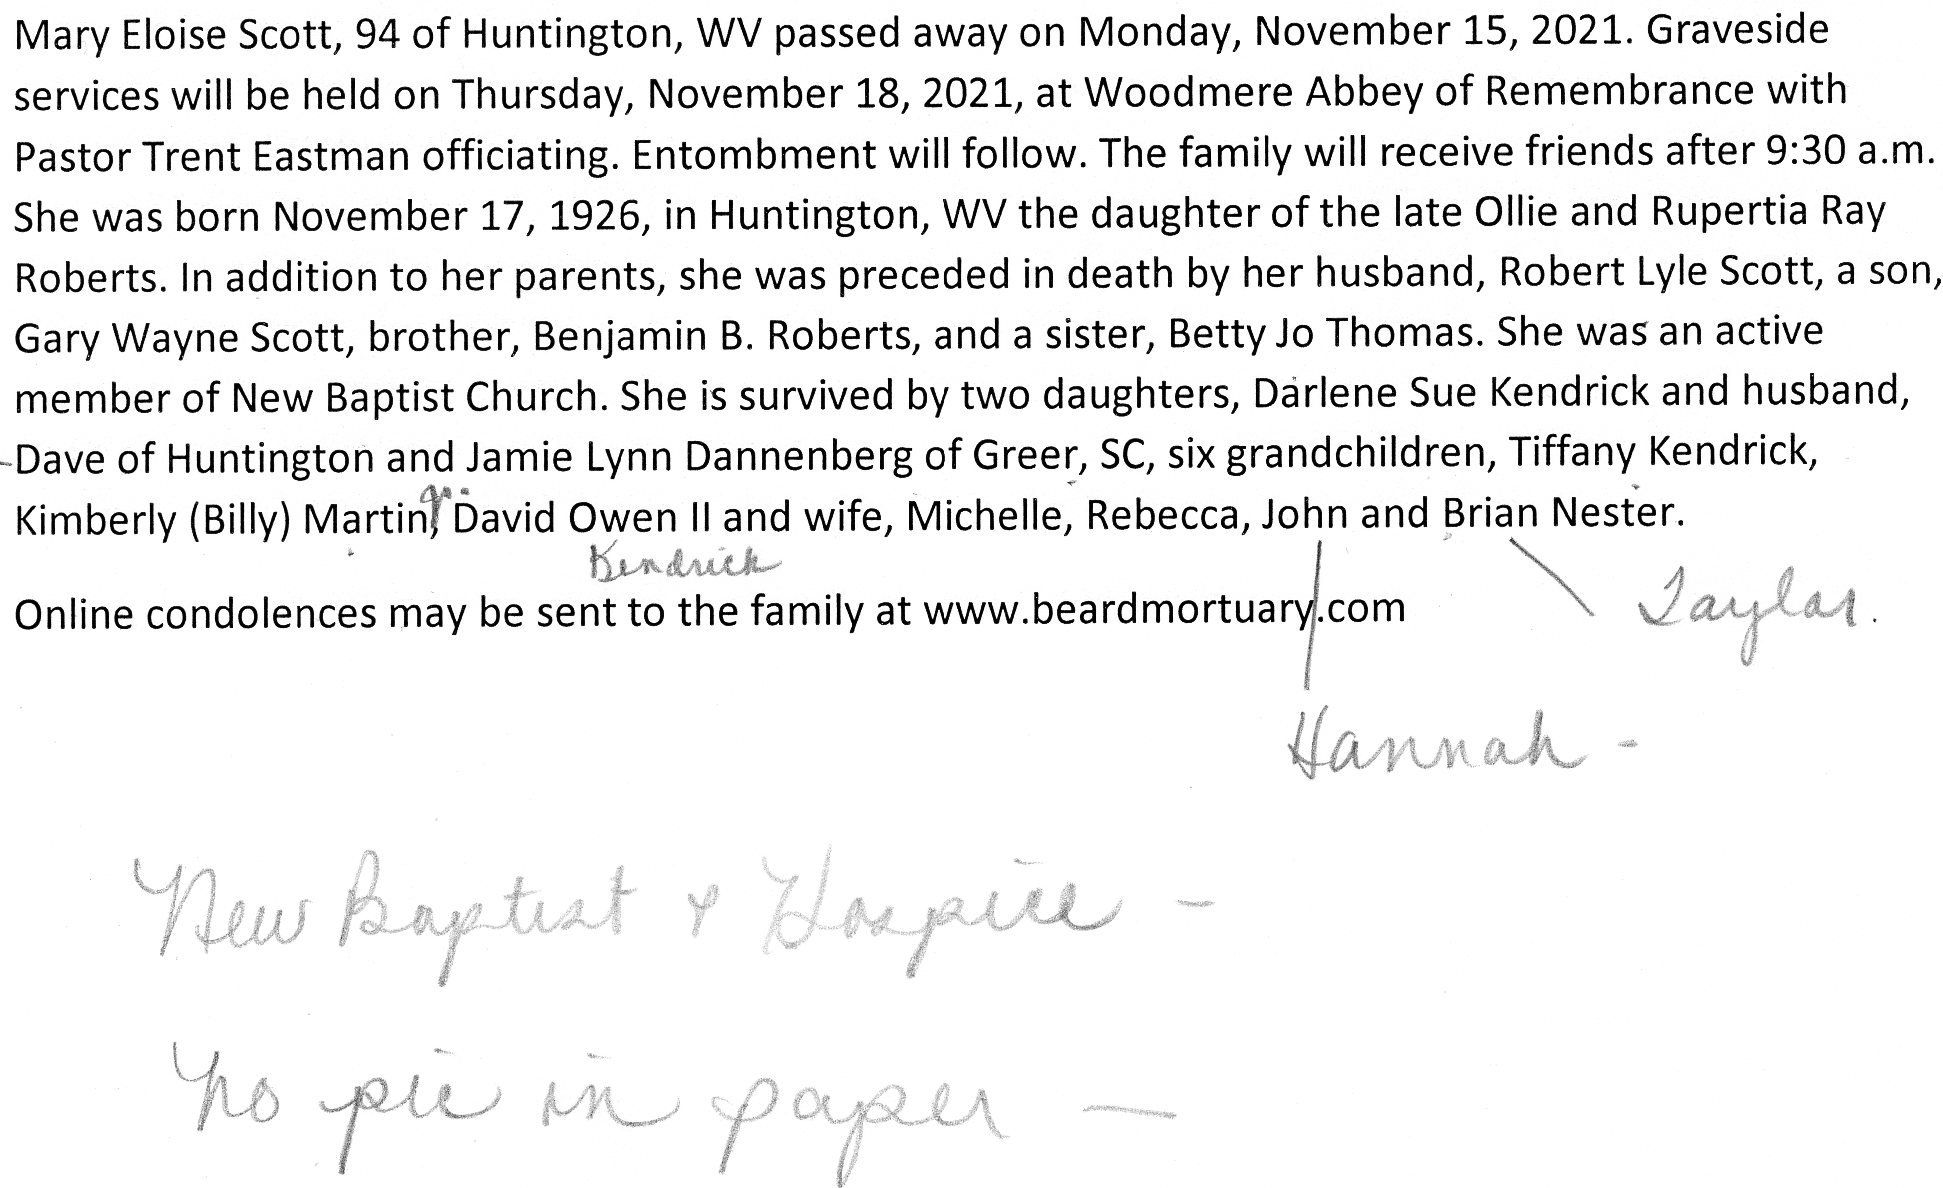 Mary Eloise Scott, 94 of Huntington, WV passed away on Monday, November 15, 2021. Graveside
services will be held on Thursday, November 18, 2021, at Woodmere Abbey of Remembrance with
Pastor Trent Eastman officiating. Entombment will follow. The family will receive friends after 9:30 a.m.
She was born November 17, 1926, in Huntington, WV the daughter of the late Ollie and Rupertia Ray
Roberts. In addition to her parents, she was preceded in death by her husband, Robert Lyle Scott, a son,
Gary Wayne Scott, brother, Benjamin B. Roberts, and a sister, Betty Jo Thomas. She was an active
member of New Baptist Church. She is survived by two daughters, Darlene Sue Kendrick and husband,
Dave of Huntington and Jamie Lynn Dannenberg of Greer, SC, six grandchildren, Tiffany Kendrick,
Kimberly (Billy) Martin, David Owen II and wife, Michelle, Rebecca, John and Brian Nester.
Kendrick
Online condolences may be sent to the family at www.beardmortuary.com
Taylor.
Hannah -
New Baptist & Hospice -
No pic in paper —